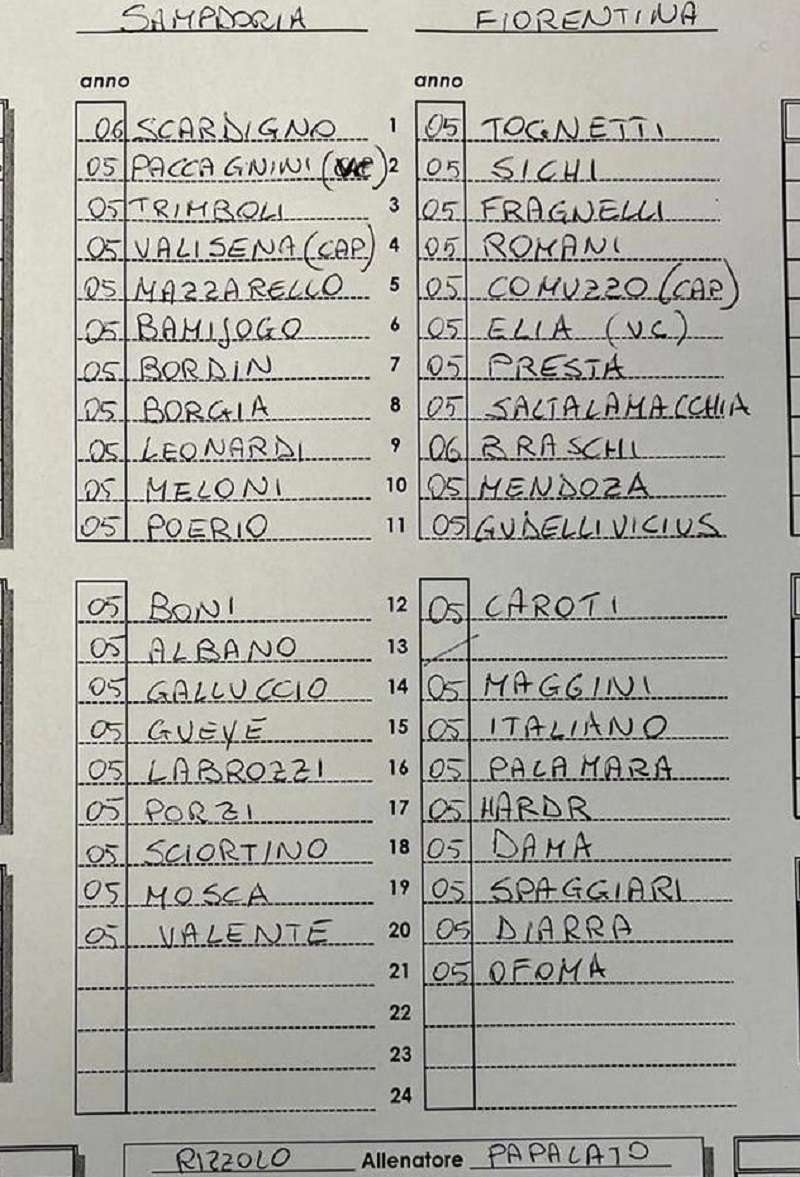 SAMPDORIA FIORENTINA
anno anno
06 SCARDIGNO 1 05 TOGNETTI
05 PACCAGNINI (VC) 2 05 SICHI
05 TRIMBOLI 3 05 FRAGNELLI
05 VALISENA (CAP) 4 05 ROMANI
05 MAZZARELLO 5 05 COMUZZO (CAP)
05 BAMIJOGO 6 05 ELIA (VC)
05 BORDIN 7 05 PRESTA
05 BORGIA 8 05 SALTALAMACCHIA
05 LEONARDI 9 06 BRASCHI
05 MELONI 10 05 MENDOZA
05 POERIO 11 05 GUDELLIVICIUS
05 BONI 12 05 CAROTI
05 ALBANO 13
05 GALLUCCIO 14 05 MAGGINI
05 GUEYE 15 05 ITALIANO
05 LABROZZI 16 05 PALAMARA
05 PORZI 17 05 HARDR
05 SCIORTINO 18 05 DAMA
05 MOSCA 19 05 SPAGGIARI
05 VALENTE 20 05 DIARRA
21 05 OFOMA
22
23
24
RIZZOLO Allenatore PAPALATO